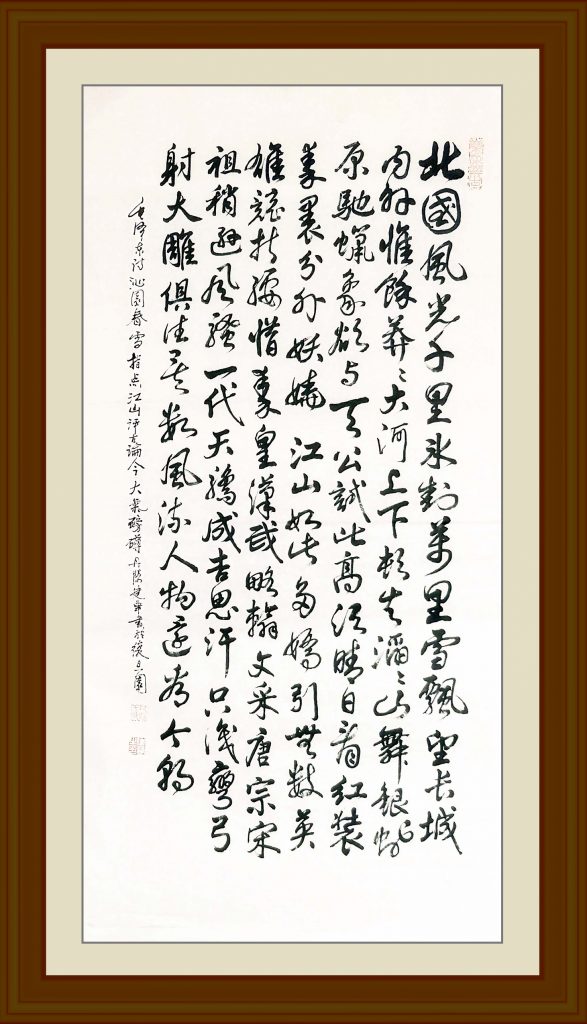 北國風光千里冰封萬里雪飄望长城
内外惟餘莽〻大河上下頓失滔〻山舞銀蛇
原馳蠟象欲与天公試比高须晴日看红装
素裹分外妖嬈江山如此多嬌引無数英
雄競折腰惜秦皇漢武略輸文采唐宗宋
祖稍遜风騷一代天驕成吉思汗只识彎弓
射大雕俱往矣数風流人物還看今朝
毛泽东诗沁园春雪指点江山评古论今大氣磅礴